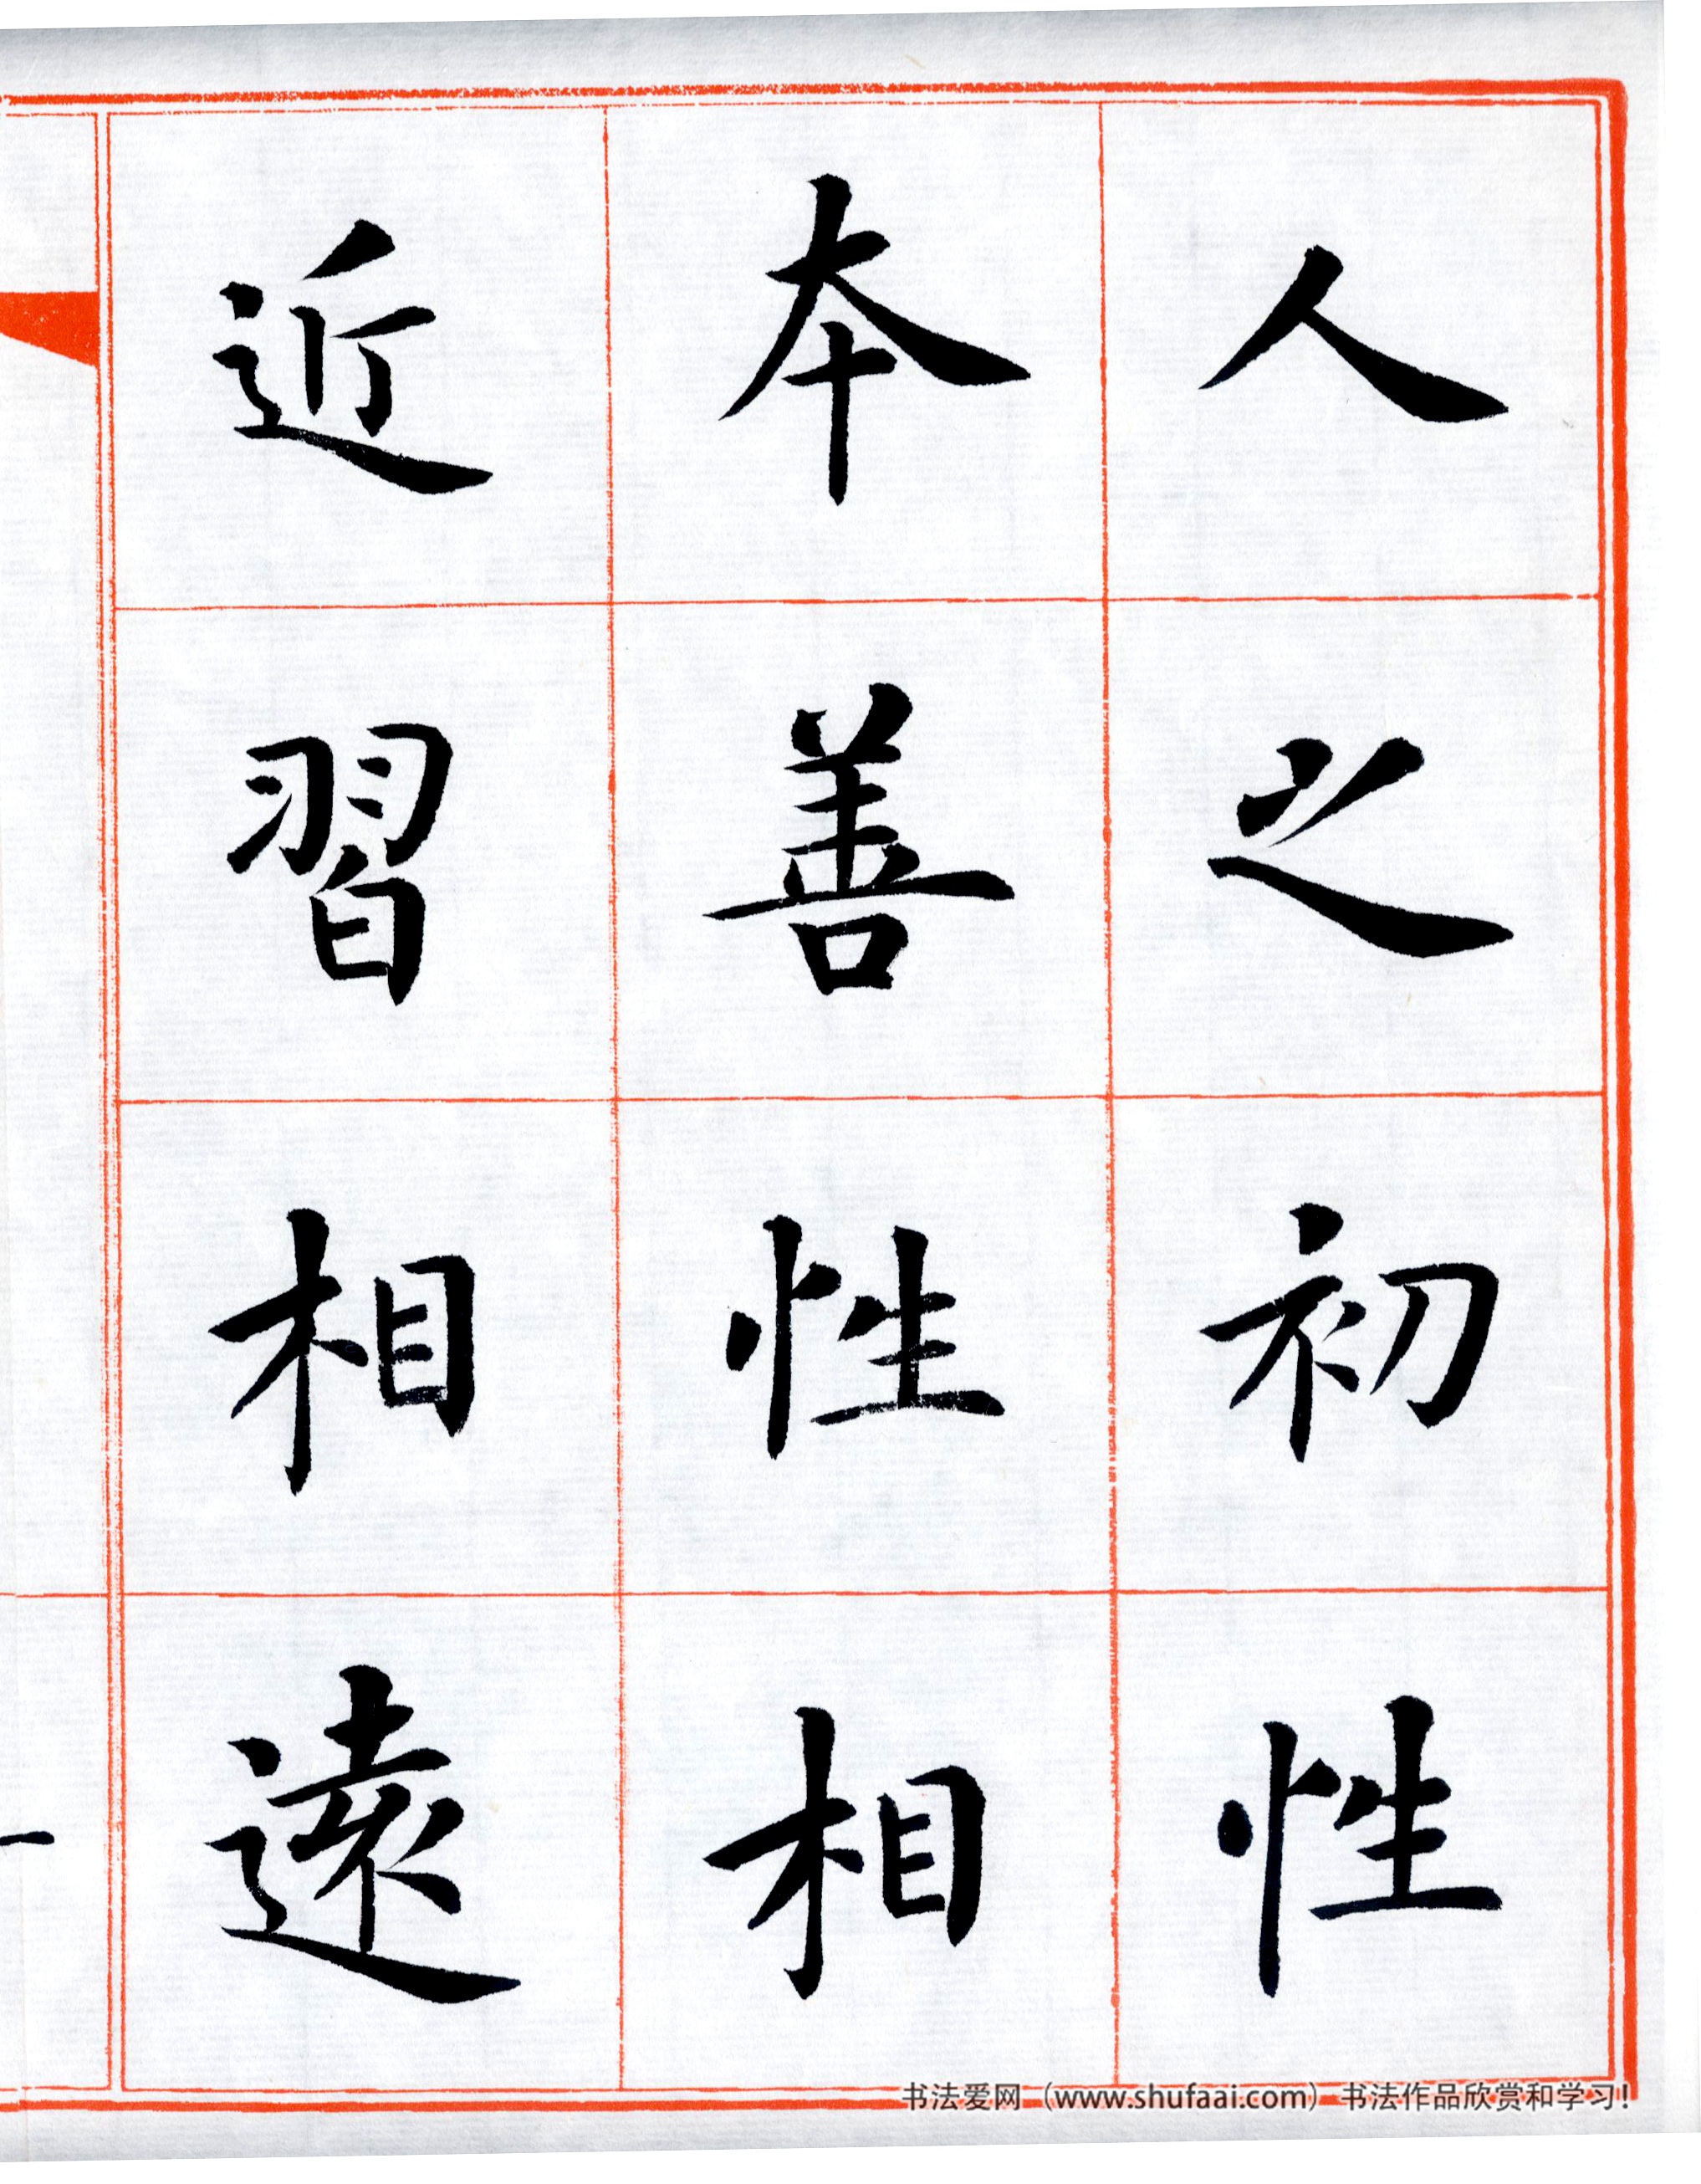 人之初性
本善性相
近習相遠
书法爱网（www.shufaai.com）书法作品欣赏和学习！